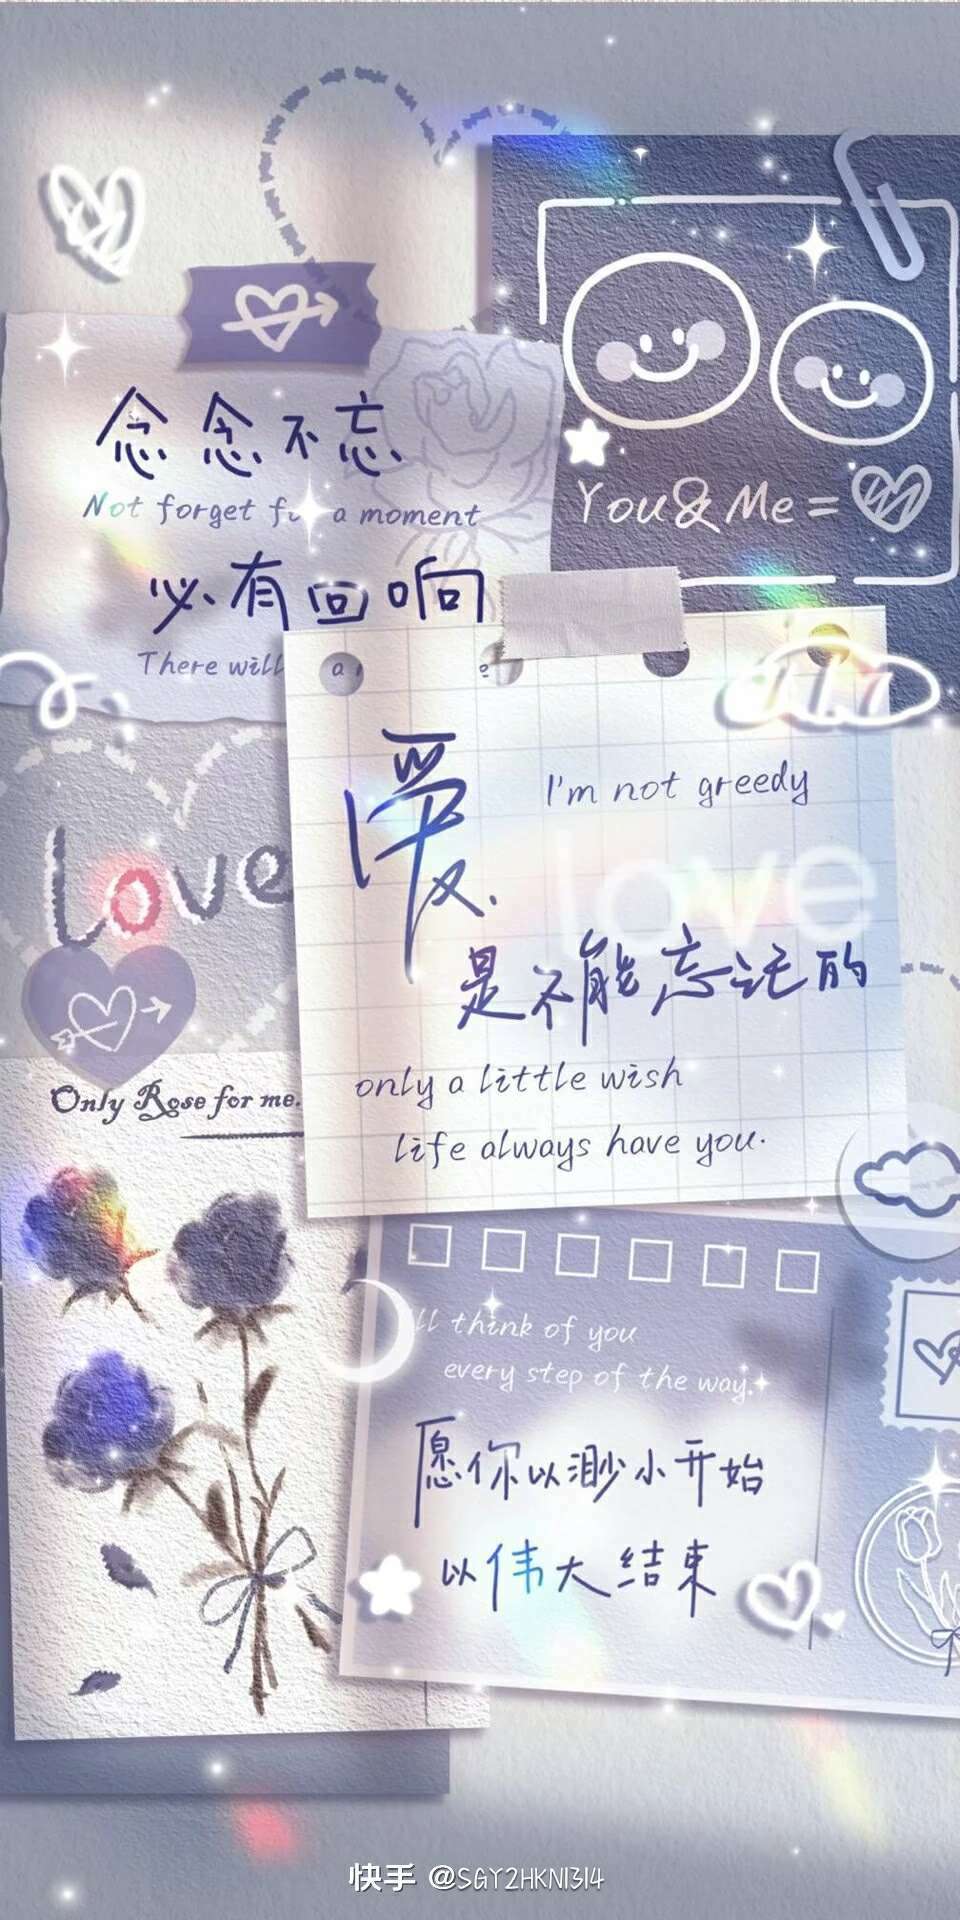 念念不忘
Not forget a moment
必有回响
There will a
You&Me=
1.7
I'm not greedy
love
爱
是不能忘记的
only a little wish
life always have you.
Love
Only Rose for me.
ll think of you
every step of the way.
愿你以渺小开始
以伟大结束
快手 @SGY2HKN1314